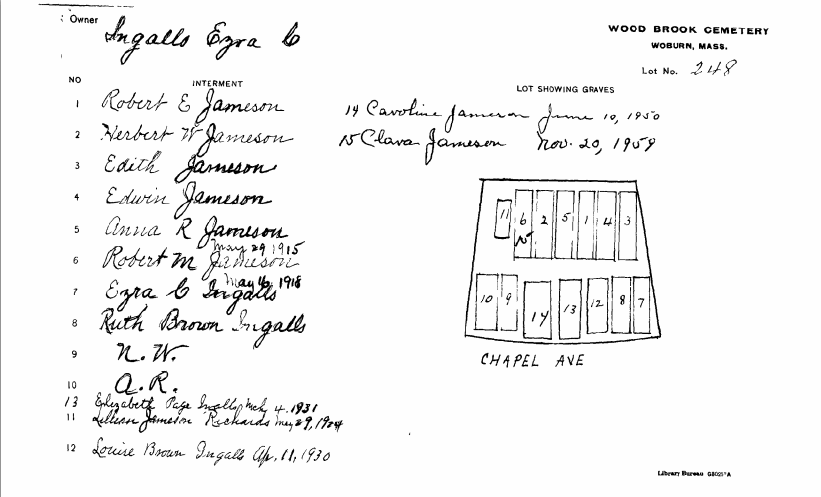 Owner
Ingalls Ezra C
WOOD BROOK CEMETERY
WOBURN, MASS.
Lot No. 248
NO INTERMENT
LOT SHOWING GRAVES
1 Robert E Jameson
2 Herbert W Jameson
3 Edith Jameson
4 Edwin Jameson
5 Anna R Jameson
May 29 1915
6 Robert M Jameson
May 16, 1918
7 Ezra C Ingalls
8 Ruth Brown Ingalls
9 N.W.
10 A.R.
13 Elizabeth Page Ingalls Mch 4, 1931
11 Lillian Jameson Richards May 29, 1924
12 Louise Brown Ingalls Ap. 11, 1930
14 Caroline Jameson June 10, 1950
15 Clara Jameson Nov. 20, 1959
11 6 2 5 1 4 3
15
10 9 14 13 12 8 7
CHAPEL AVE
Library Bureau